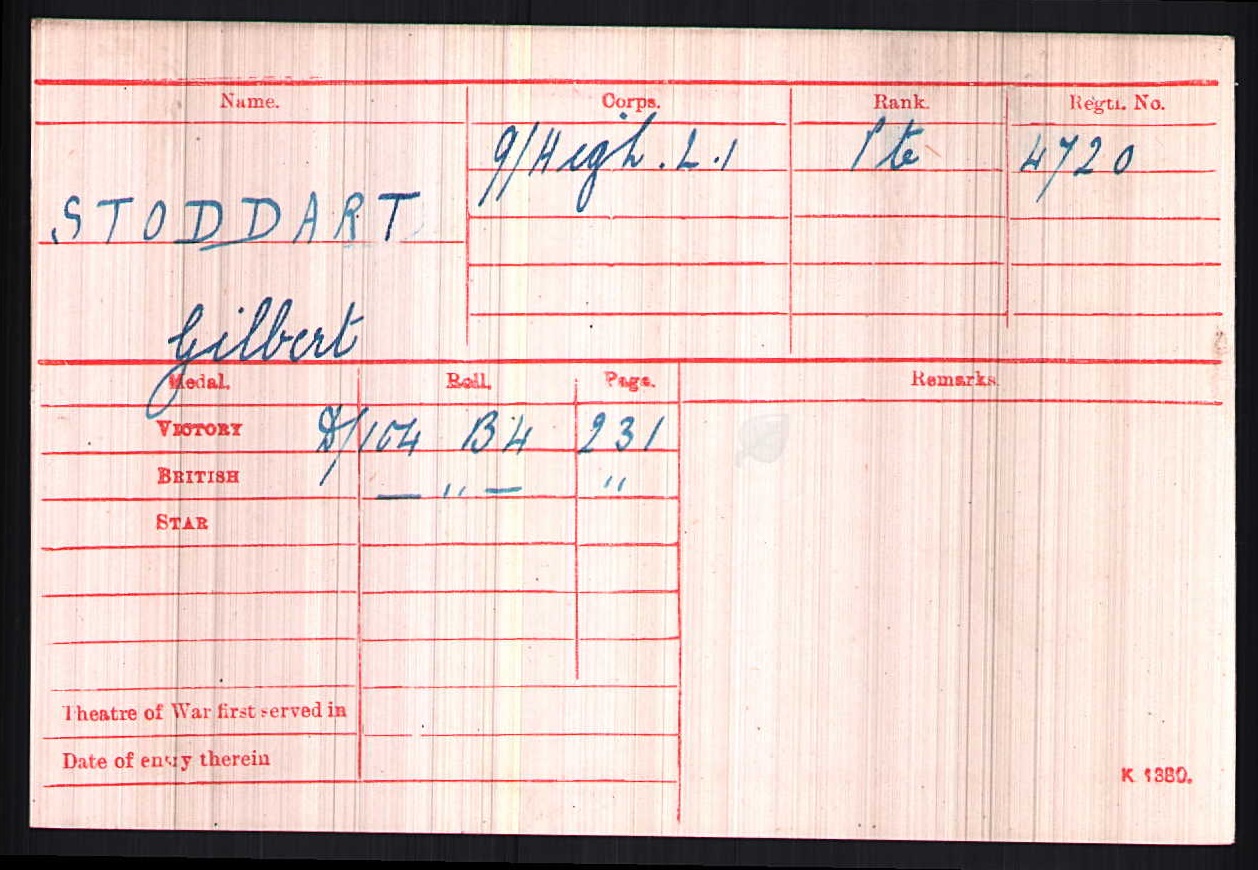 Name. Corps. Rank. Regtl. No.
9/High. L.I Pte 4720
STODDART
Gilbert
Medal. Roll. Page. Remarks.
VICTORY D/104 B4 231
BRITISH — " — "
STAR
Theatre of War first served in
Date of entry therein
K 1380.